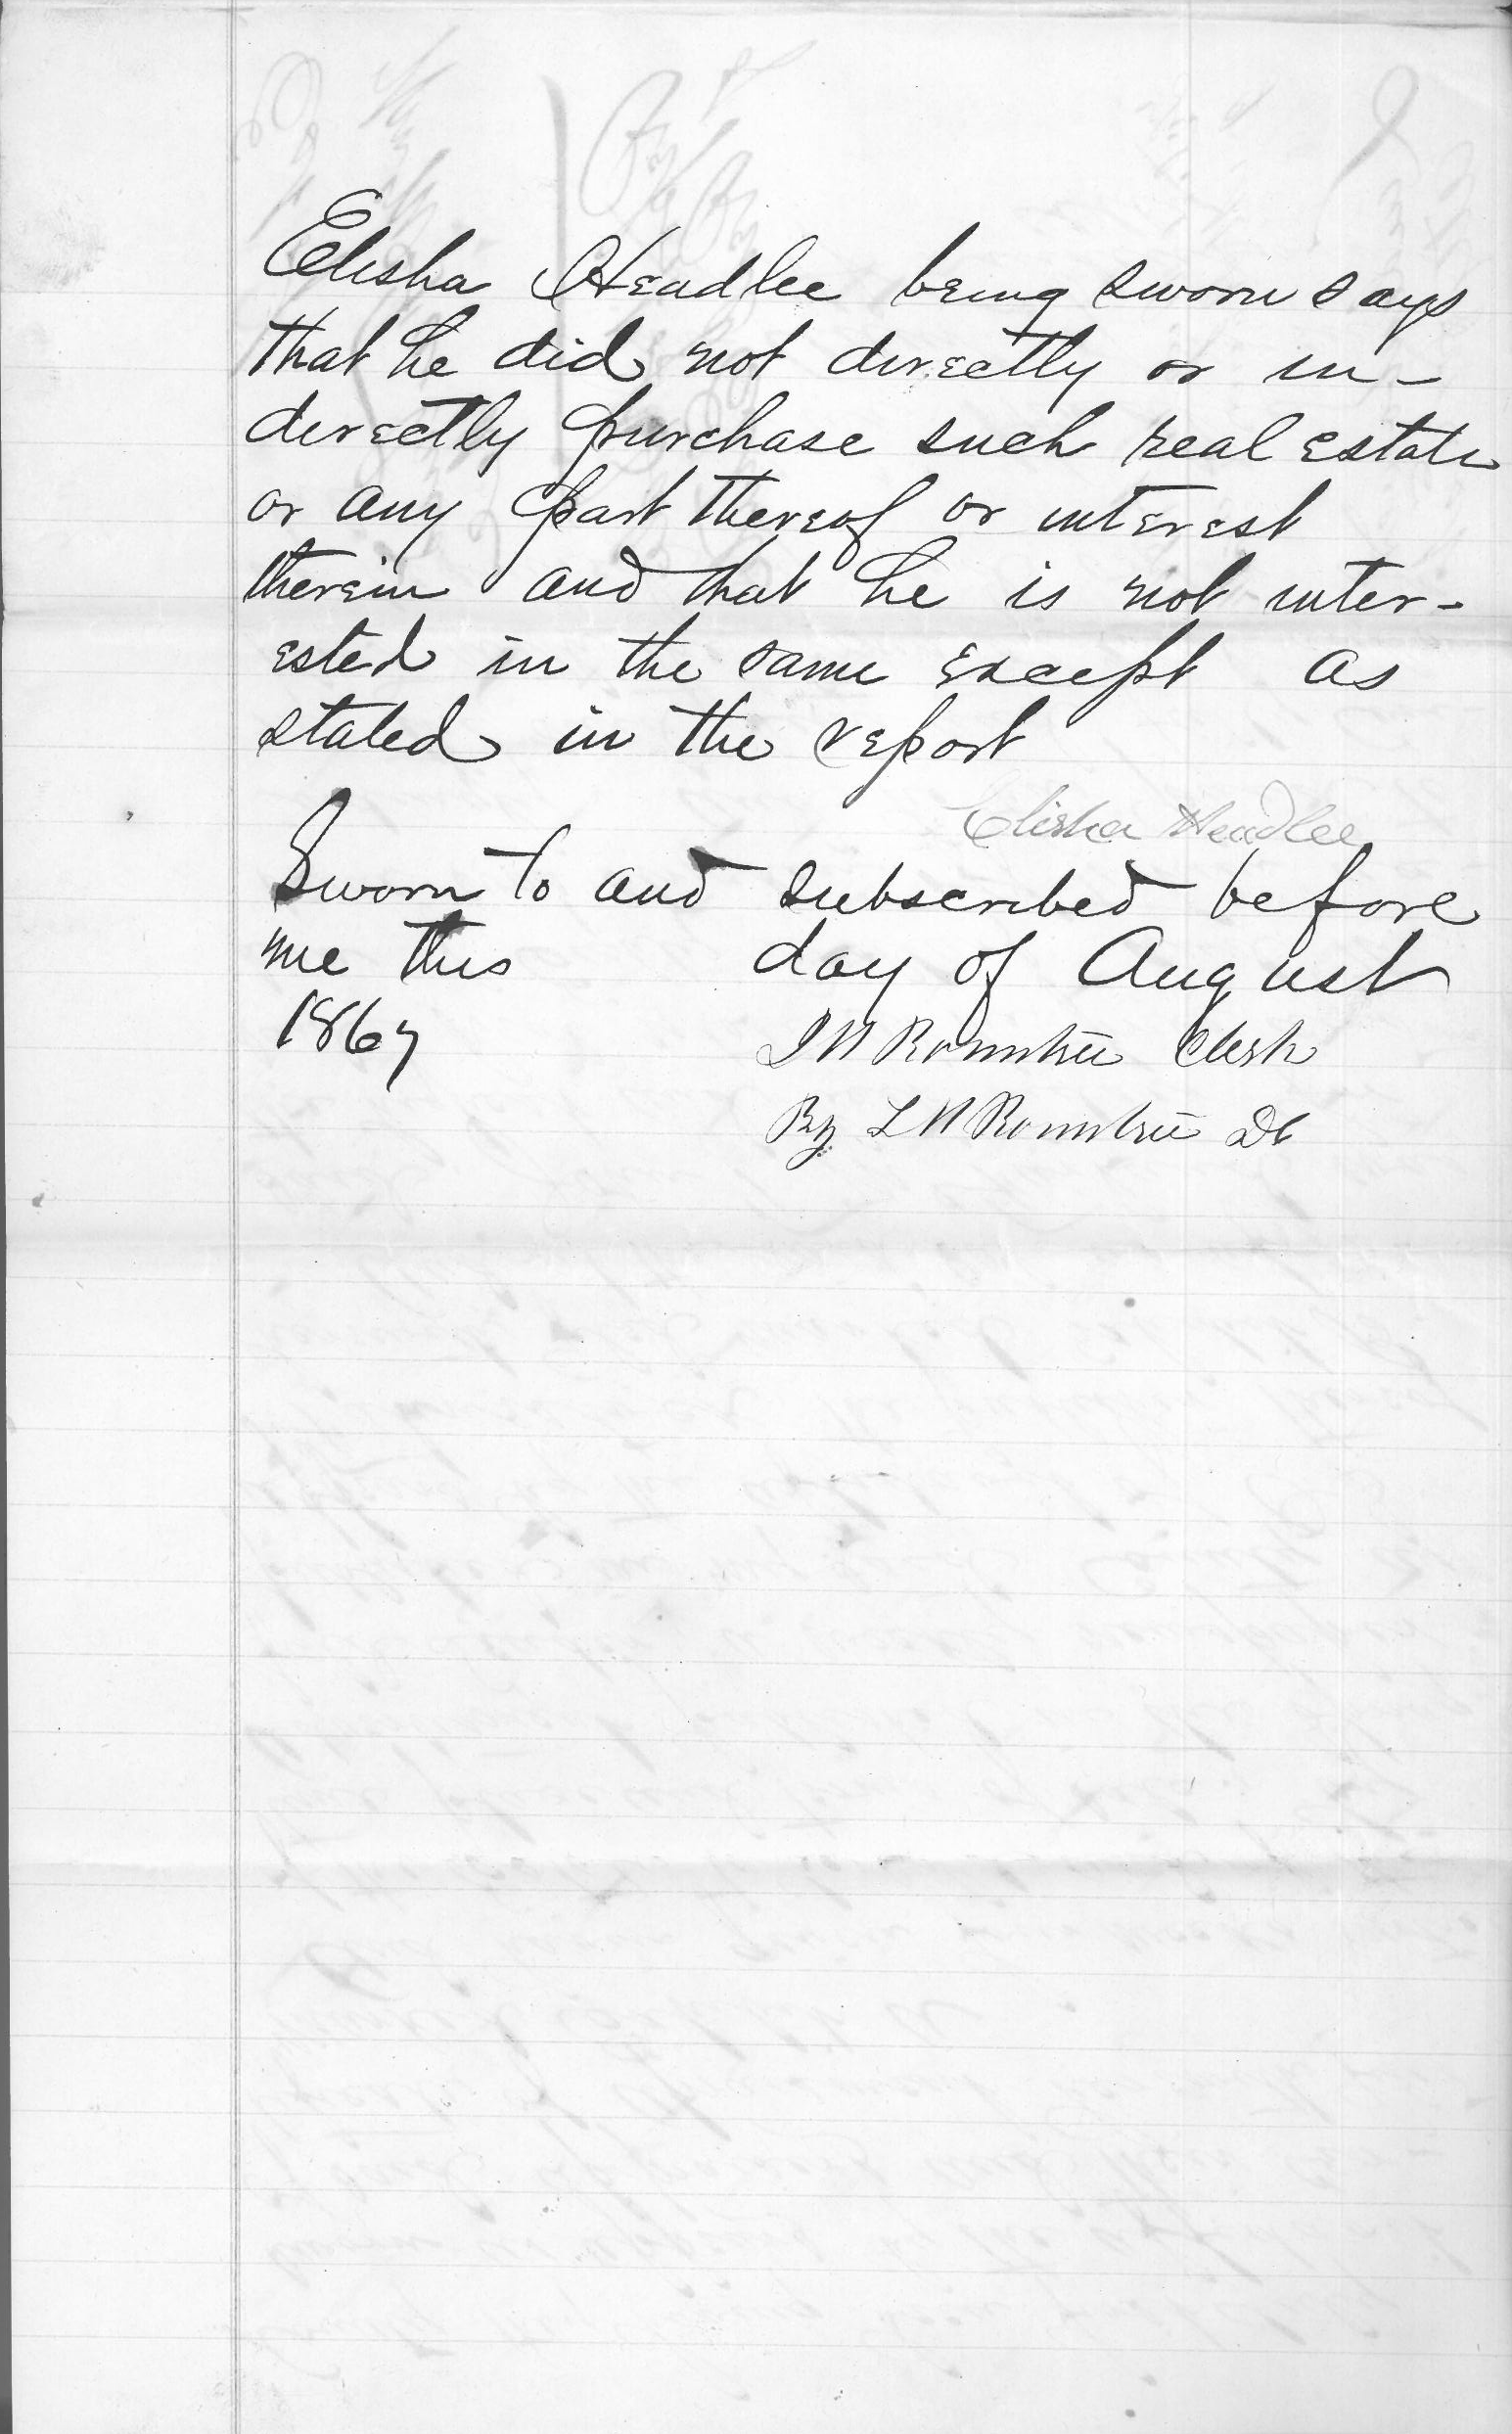 Elisha Headlee being sworn says
that he did not directly or in-
directly purchase such real estate
or any part thereof or interest
therein and that he is not inter-
ested in the same except as
stated in the report
Elisha Headlee
Sworn to and subscribed before
me this day of August
1867
J N Rountree Clerk
By L N Rountree DC